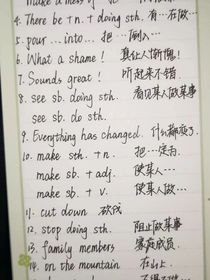 Make a mess of
4. There be + n. + doing sth. 有…在做…
5. pour ... into ... 把…倒入…
6. What a shame! 真让人惭愧!
7. Sounds great! 听起来不错.
8. see sb. doing sth. 看见某人做某事
see sb. do sth.
9. Everything has changed. 什么都变了.
10. make sth. + n. 把…定为
make sb. + adj. 使某人…
make sb. + v. 使某人做…
11. cut down 砍伐
12. stop doing sth. 阻止做某事
13. family members 家庭成员
14. on the mountain 在山上